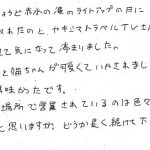 ょうど赤水の滝のライトアップの月に
されたのと、ヤキニマトラベルTVさん
見て気になって泊まりました。
と猫ちゃんが可愛くていやされまし
味かったです。
場所で営業されているのは色々
と思いますが、どうか長く続けて下